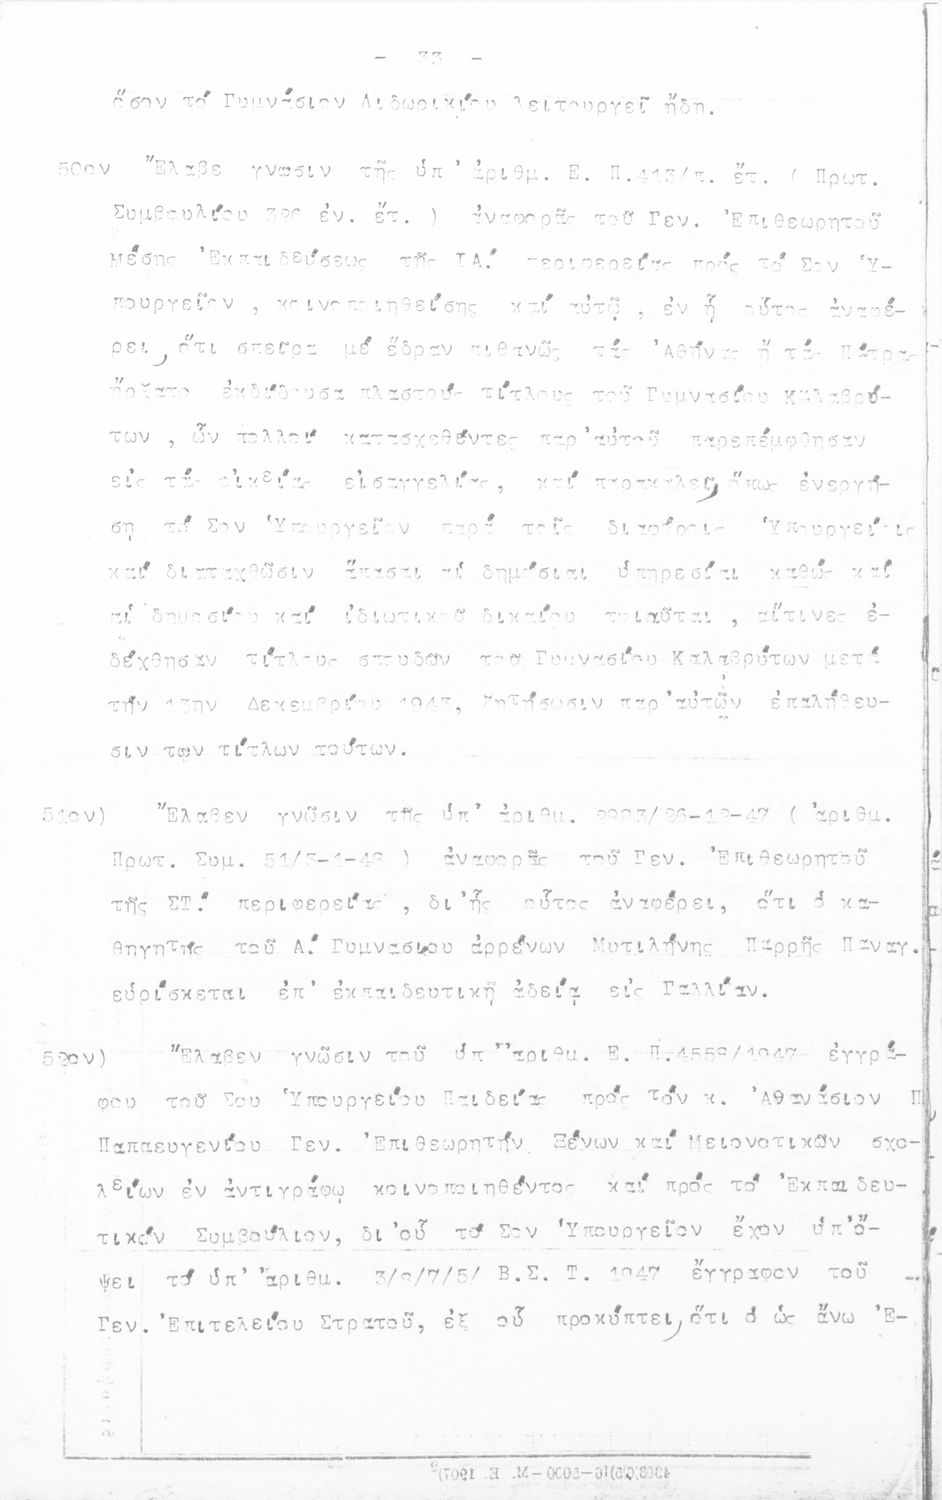 - 33 -
ὅσον τό Γυμνάσιον Λιδωρικίου λειτουργεῖ ἤδη.
50ον Ἔλαβε γνωσιν τῆς ὑπ' ἀριθμ. Ε. Π.413/π. ἔτ. ( Πρωτ.
Συμβουλίου 326 ἐν. ἔτ. ) ἀναφορᾶς τοῦ Γεν. Ἐπιθεωρητοῦ
Μέσης Ἐκπαιδεύσεως τῆς ΙΑ! περιφερείας πρός τό Σον Ὑ-
πουργεῖον , κοινοποιηθείσης καί αὐτῷ , ἐν ᾗ οὗτος ἀναφέ-
ρει, ὅτι σπείρα μέ ἕδραν πιθανῶς τάς Ἀθήνας ἤ τάς Πάτρας
ἤρξατο ἐκδίδουσα πλαστούς τίτλους τοῦ Γυμνασίου Καλαβρύ-
των , ὧν πολλοί κατασχεθέντες παρ'αὐτοῦ παρεπέμφθησαν
εἰς τάς οἰκείας εἰσαγγελίας, καί παρακαλεῖ, ὅπως ἐνεργή-
ση τό Σον Ὑπουργεῖον παρά τοῖς διαφόροις Ὑπουργείοις
καί διαταχθῶσιν ἅπασαι αἱ δημόσιαι ὑπηρεσίαι καθώς καί
αἱ δημοσίου καί ἰδιωτικοῦ δικαίου τοιαῦται , αἵτινες ἐ-
δέχθησαν τίτλους σπουδῶν τοῦ Γυμνασίου Καλαβρύτων μετά
τήν 13ην Δεκεμβρίου 1943, ζητήσωσιν παρ'αὐτῶν ἐπαλήθευ-
σιν των τίτλων τούτων.
51ον) Ἔλαβεν γνῶσιν τῆς ὑπ' ἀριθμ. 2223/26-12-47 ( ἀριθμ.
Πρωτ. Συμ. 51/3-1-48 ) ἀναφορᾶς τοῦ Γεν. Ἐπιθεωρητοῦ
τῆς ΣΤ! περιφερείας , δι'ἧς οὗτος ἀναφέρει, ὅτι ὁ κα-
θηγητής τοῦ Α! Γυμνασίου ἀρρένων Μυτιλήνης Παρρῆς Παναγ.
εὑρίσκεται ἐπ' ἐκπαιδευτικῇ ἀδείᾳ εἰς Γαλλίαν.
52ον) Ἔλαβεν γνῶσιν τοῦ ὑπ' ἀριθμ. Ε. Π.4558/1947 ἐγγρά-
φου τοῦ Σου Ὑπουργείου Παιδείας πρός τόν κ. Ἀθανάσιον Π
Παπαευγενίου Γεν. Ἐπιθεωρητήν Ξένων καί Μειονοτικῶν σχο-
λείων ἐν ἀντιγράφῳ κοινοποιηθέντος καί πρός τό Ἐκπαιδευ-
τικόν Συμβούλιον, δι'οὗ τό Σον Ὑπουργεῖον ἔχον ὑπ'ὄ-
ψει τό ὑπ' ἀριθμ. 3/2/7/5/ Β.Σ. Τ. 1947 ἔγγραφον τοῦ
Γεν. Ἐπιτελείου Στρατοῦ, ἐξ οὗ προκύπτει, ὅτι ὁ ὡς ἄνω Ἐ-